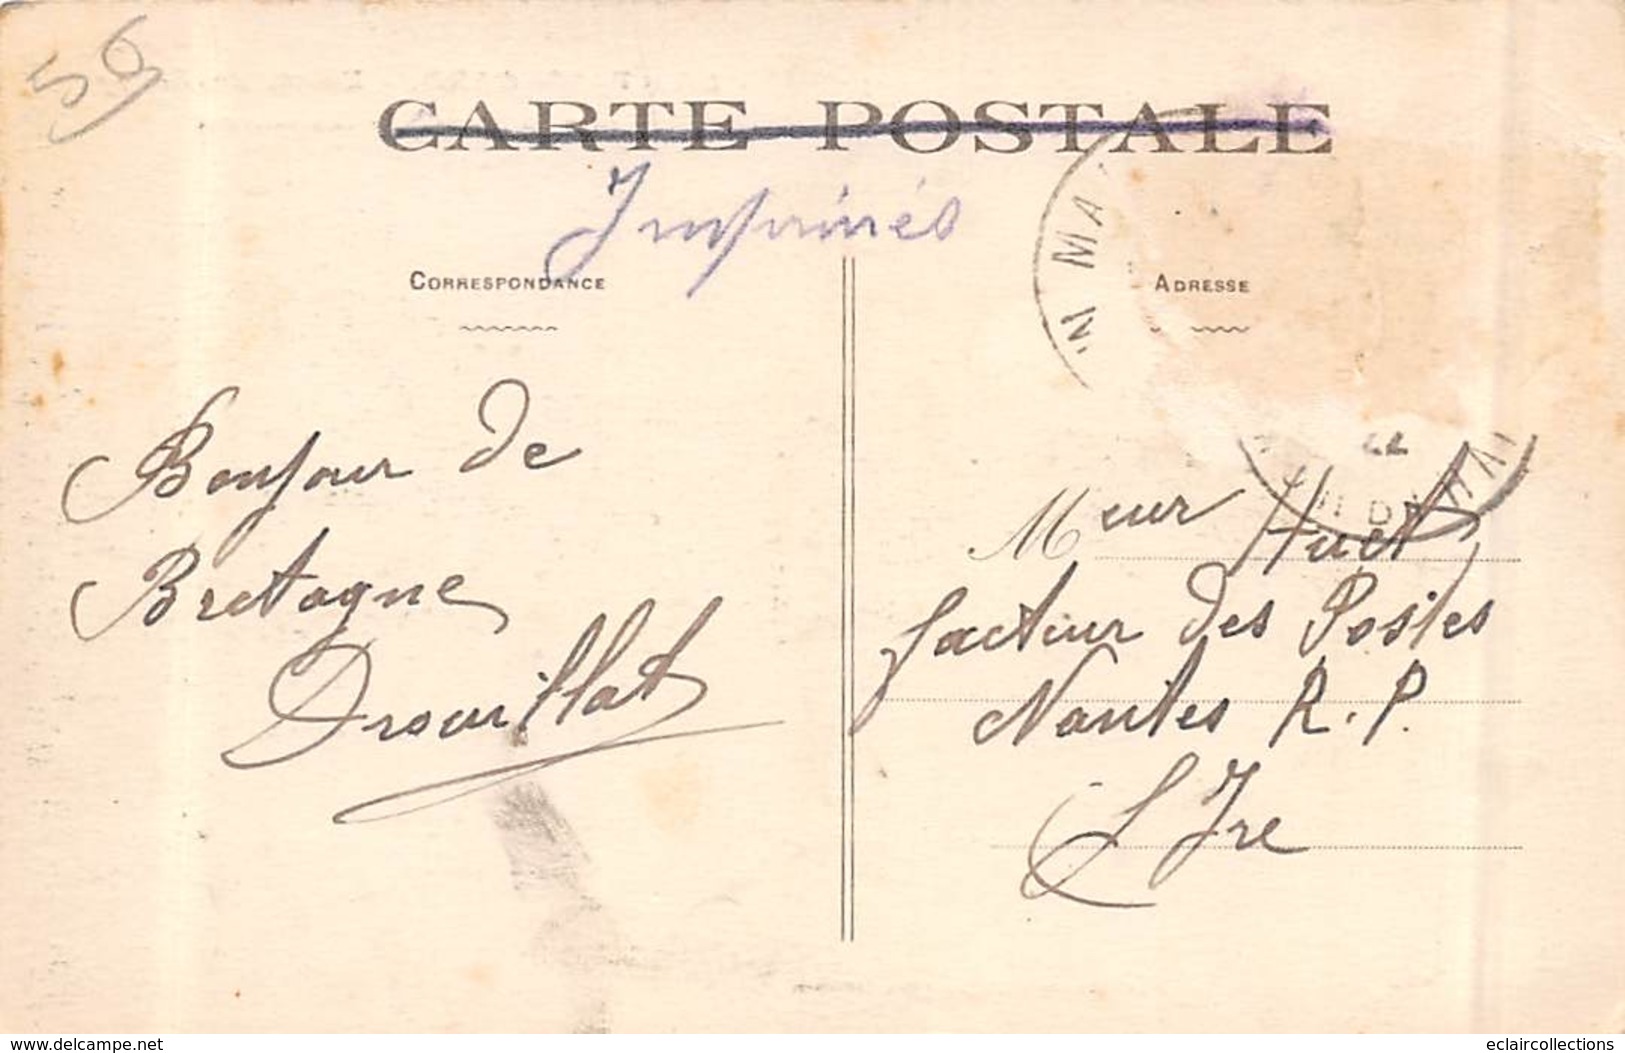 56
CARTE POSTALE
Imprimés
CORRESPONDANCE
ADRESSE
Bonjour de
Bretagne
Drouillat
Meur Huet
facteur des Postes
Nantes R. P.
L Ire
22
www.delcampe.net
eclaircollections